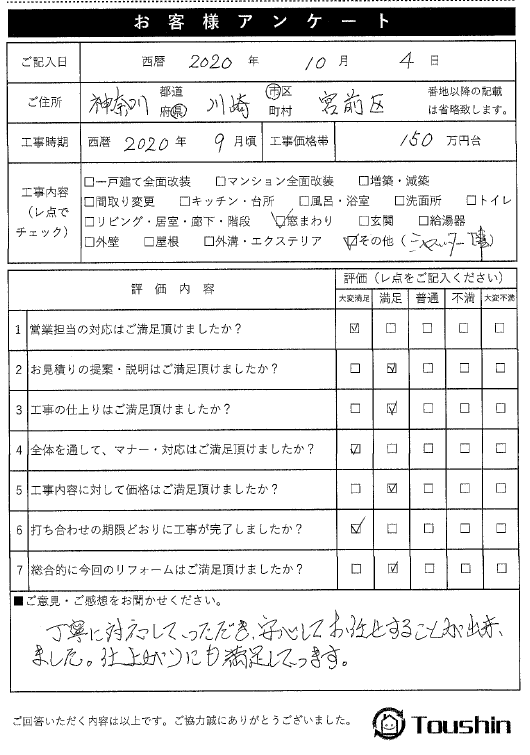 お客様アンケート
ご記入日 西暦 2020 年 10 月 4 日
ご住所 神奈川 都道府県 川崎 市区町村 宮前区 番地以降の記載は省略致します。
工事時期 西暦 2020 年 9 月頃 工事価格帯 150 万円台
工事内容（レ点でチェック）
□一戸建て全面改装 □マンション全面改装 □増築・減築
□間取り変更 □キッチン・台所 □風呂・浴室 □洗面所 □トイレ
□リビング・居室・廊下・階段 ☑窓まわり □玄関 □給湯器
□外壁 □屋根 □外溝・エクステリア ☑その他（シャッター）
評価内容 評価（レ点をご記入ください）
大変満足 満足 普通 不満 大変不満
1 営業担当の対応はご満足頂けましたか？ ☑ □ □ □ □
2 お見積りの提案・説明はご満足頂けましたか？ □ ☑ □ □ □
3 工事の仕上りはご満足頂けましたか？ □ ☑ □ □ □
4 全体を通して、マナー・対応はご満足頂けましたか？ ☑ □ □ □ □
5 工事内容に対して価格はご満足頂けましたか？ □ ☑ □ □ □
6 打ち合わせの期限どおりに工事が完了しましたか？ ☑ □ □ □ □
7 総合的に今回のリフォームはご満足頂けましたか？ □ ☑ □ □ □
■ご意見・ご感想をお聞かせください。
丁寧に対応していただき、安心してお任せすることが出来
ました。仕上がりにも満足しています。
ご回答いただく内容は以上です。ご協力誠にありがとうございました。
Toushin